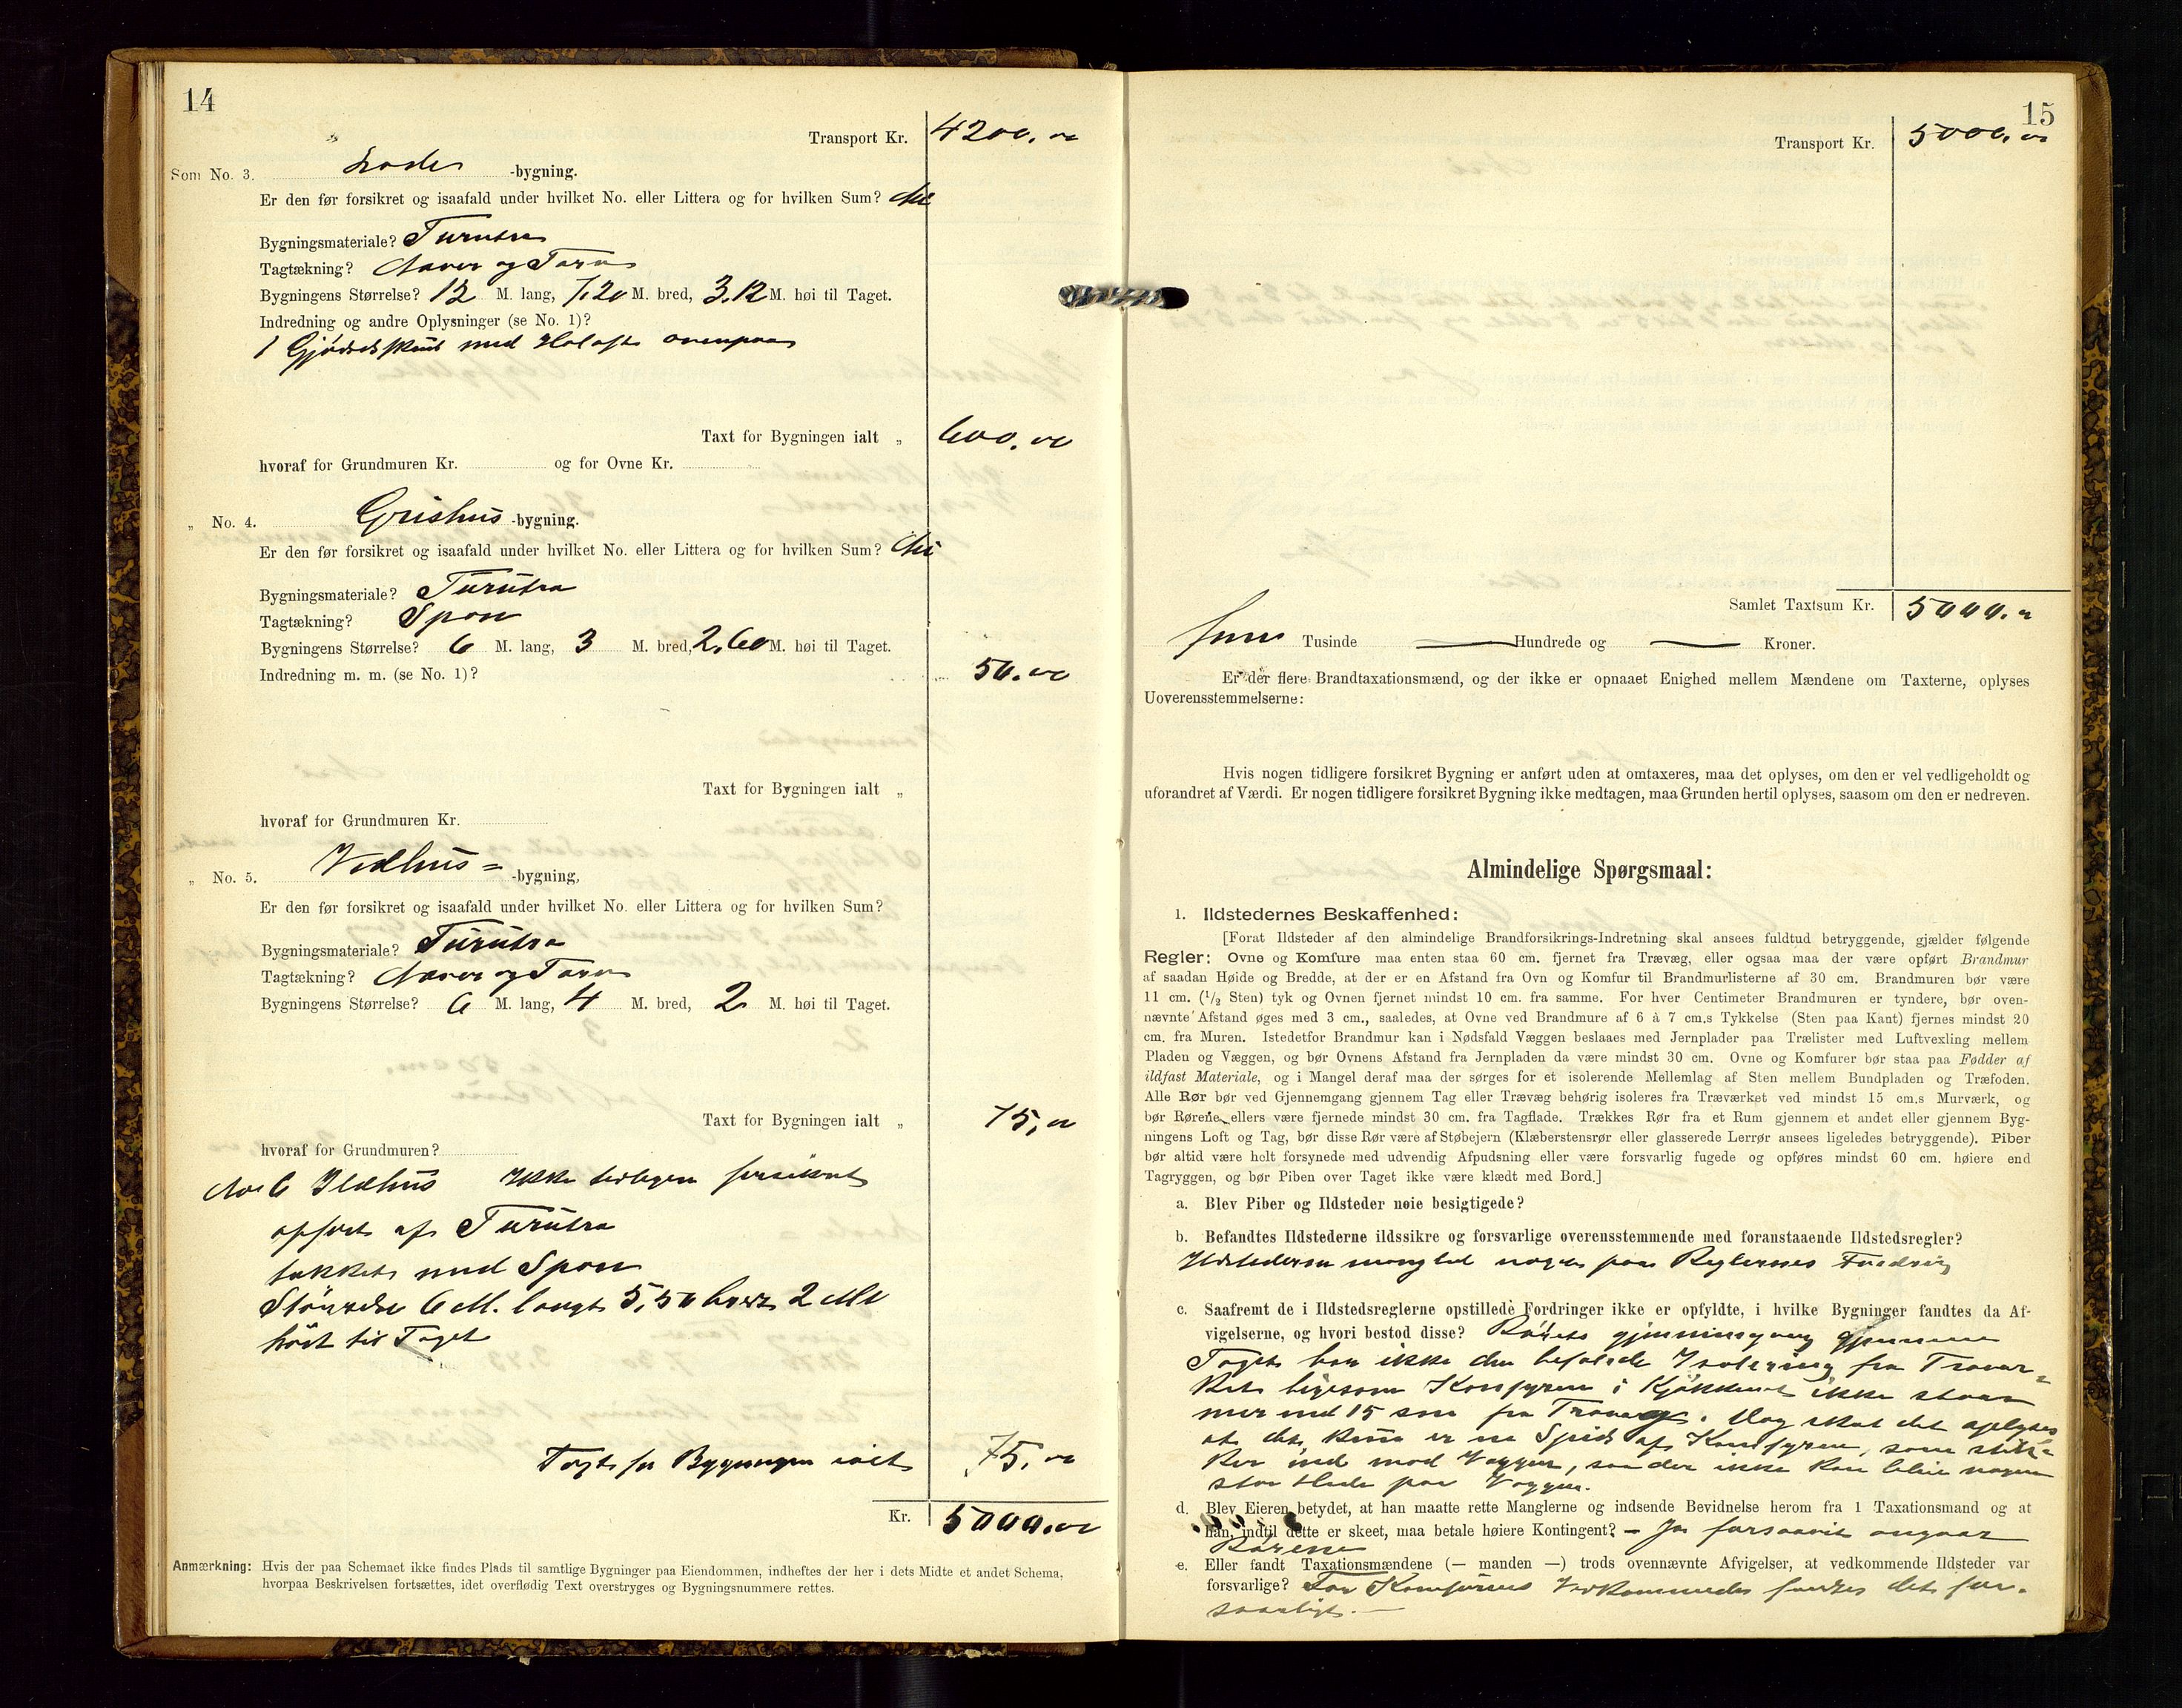 14
Transport Kr. 4200.00
Som No. 3. Lade -bygning.
Er den før forsikret og isaafald under hvilket No. eller Littera og for hvilken Sum? Nei
Bygningsmateriale? Furutræ
Tagtækning? Næver og Torv
Bygningens Størrelse? 12 M. lang, 7,20 M. bred, 3,12 M. høi til Taget.
Indredning og andre Oplysninger (se No. 1)?
1 med ovenpaa
Taxt for Bygningen ialt „ 600.00
hvoraf for Grundmuren Kr. og for Ovne Kr.
„ No. 4. Grishus -bygning.
Er den før forsikret og isaafald under hvilket No. eller Littera og for hvilken Sum? Nei
Bygningsmateriale? Furutræ
Tagtækning? Spon
Bygningens Størrelse? 6 M. lang, 3 M. bred, 2,60 M. høi til Taget.
Indredning m. m. (se No. 1)? 50.00
Taxt for Bygningen ialt „
hvoraf for Grundmuren Kr.
„ No. 5. Vedhus= -bygning,
Er den før forsikret og isaafald under hvilket No. eller Littera og for hvilken Sum?
Bygningsmateriale? Furutræ
Tagtækning? Næver og Torv
Bygningens Størrelse? 6 M. lang, 4 M. bred, 2 M. høi til Taget.
Taxt for Bygningen ialt „ 75,00
hvoraf for Grundmuren?
No 6 Ildhus Ikke tidligere forsikret
opført af Furutræ
tækket med Spon
Størrelse 6 M. langt 5,50 bredt 2 Mt
høit til Taget
Taxt for Bygningen ialt 75,00
Kr. 5000.00
Anmærkning: Hvis der paa Schemaet ikke findes Plads til samtlige Bygninger paa Eiendommen, indheftes der her i dets Midte et andet Schema,
hvorpaa Beskrivelsen fortsættes, idet overflødig Text overstryges og Bygningsnummere rettes.
15
Transport Kr. 5000,00
Samlet Taxtsum Kr. 5000.00
Fem Tusinde — Hundrede og — Kroner.
Er der flere Brandtaxationsmænd, og der ikke er opnaaet Enighed mellem Mændene om Taxterne, oplyses
Uoverensstemmelserne:
Hvis nogen tidligere forsikret Bygning er anført uden at omtaxeres, maa det oplyses, om den er vel vedligeholdt og
uforandret af Værdi. Er nogen tidligere forsikret Bygning ikke medtagen, maa Grunden hertil oplyses, saasom om den er nedreven.
Almindelige Spørgsmaal:
1. Ildstedernes Beskaffenhed:
[Forat Ildsteder af den almindelige Brandforsikrings-Indretning skal ansees fuldtud betryggende, gjælder følgende
Regler: Ovne og Komfure maa enten staa 60 cm. fjernet fra Trævæg, eller ogsaa maa der være opført Brandmur
af saadan Høide og Bredde, at der er en Afstand fra Ovn og Komfur til Brandmurlisterne af 30 cm. Brandmuren bør være
11 cm. (1/2 Sten) tyk og Ovnen fjernet mindst 10 cm. fra samme. For hver Centimeter Brandmuren er tyndere, bør oven-
nævnte Afstand øges med 3 cm., saaledes, at Ovne ved Brandmure af 6 à 7 cm.s Tykkelse (Sten paa Kant) fjernes mindst 20
cm. fra Muren. Istedetfor Brandmur kan i Nødsfald Væggen beslaaes med Jernplader paa Trælister med Luftvexling mellem
Pladen og Væggen, og bør Ovnens Afstand fra Jernpladen da være mindst 30 cm. Ovne og Komfurer bør staa paa Fødder af
ildfast Materiale, og i Mangel deraf maa der sørges for et isolerende Mellemlag af Sten mellem Bundpladen og Træfoden.
Alle Rør bør ved Gjennemgang gjennem Tag eller Trævæg behørig isoleres fra Træværket ved mindst 15 cm.s Murværk, og
bør Rørene ellers være fjernede mindst 30 cm. fra Tagflade. Trækkes Rør fra et Rum gjennem et andet eller gjennem Byg-
ningens Loft og Tag, bør disse Rør være af Støbejern (Klæberstensrør eller glasserede Lerrør ansees ligeledes betryggende). Piber
bør altid være helt forsynede med udvendig Afpudsning eller være forsvarlig fugede og opføres mindst 60 cm. høiere end
Tagryggen, og bør Piben over Taget ikke være klædt med Bord.]
a. Blev Piber og Ildsteder nøie besigtigede?
b. Befandtes Ildstederne ildssikre og forsvarlige overensstemmende med foranstaaende Ildstedsregler?
Ildstederne manglede noget paa Reglernes Fordring
c. Saafremt de i Ildstedsreglerne opstillede Fordringer ikke er opfyldte, i hvilke Bygninger fandtes da Af-
vigelserne, og hvori bestod disse? Rørets gjennemgang gjennem
Taget har ikke den befalede Isolering fra Trævær=
ket ligesom Komfyren i Kjøkkenet ikke staar
mer end 15 cm fra Trævæg. Dog skal det oplyses
at det kun er en Spids af Komfyren, som stik=
ker ind mod Væggen, saa der ikke kan blive nogen
stor Hede paa Væggen.
d. Blev Eieren betydet, at han maatte rette Manglerne og indsende Bevidnelse herom fra 1 Taxationsmand og at
han, indtil dette er skeet, maa betale høiere Kontingent? – Ja forsaavidt angaar
Rørene
e. Eller fandt Taxationsmændene (— manden —) trods ovennævnte Afvigelser, at vedkommende Ildsteder var
forsvarlige? For Komfurens Vedkommende findes det for-
svarligt. —